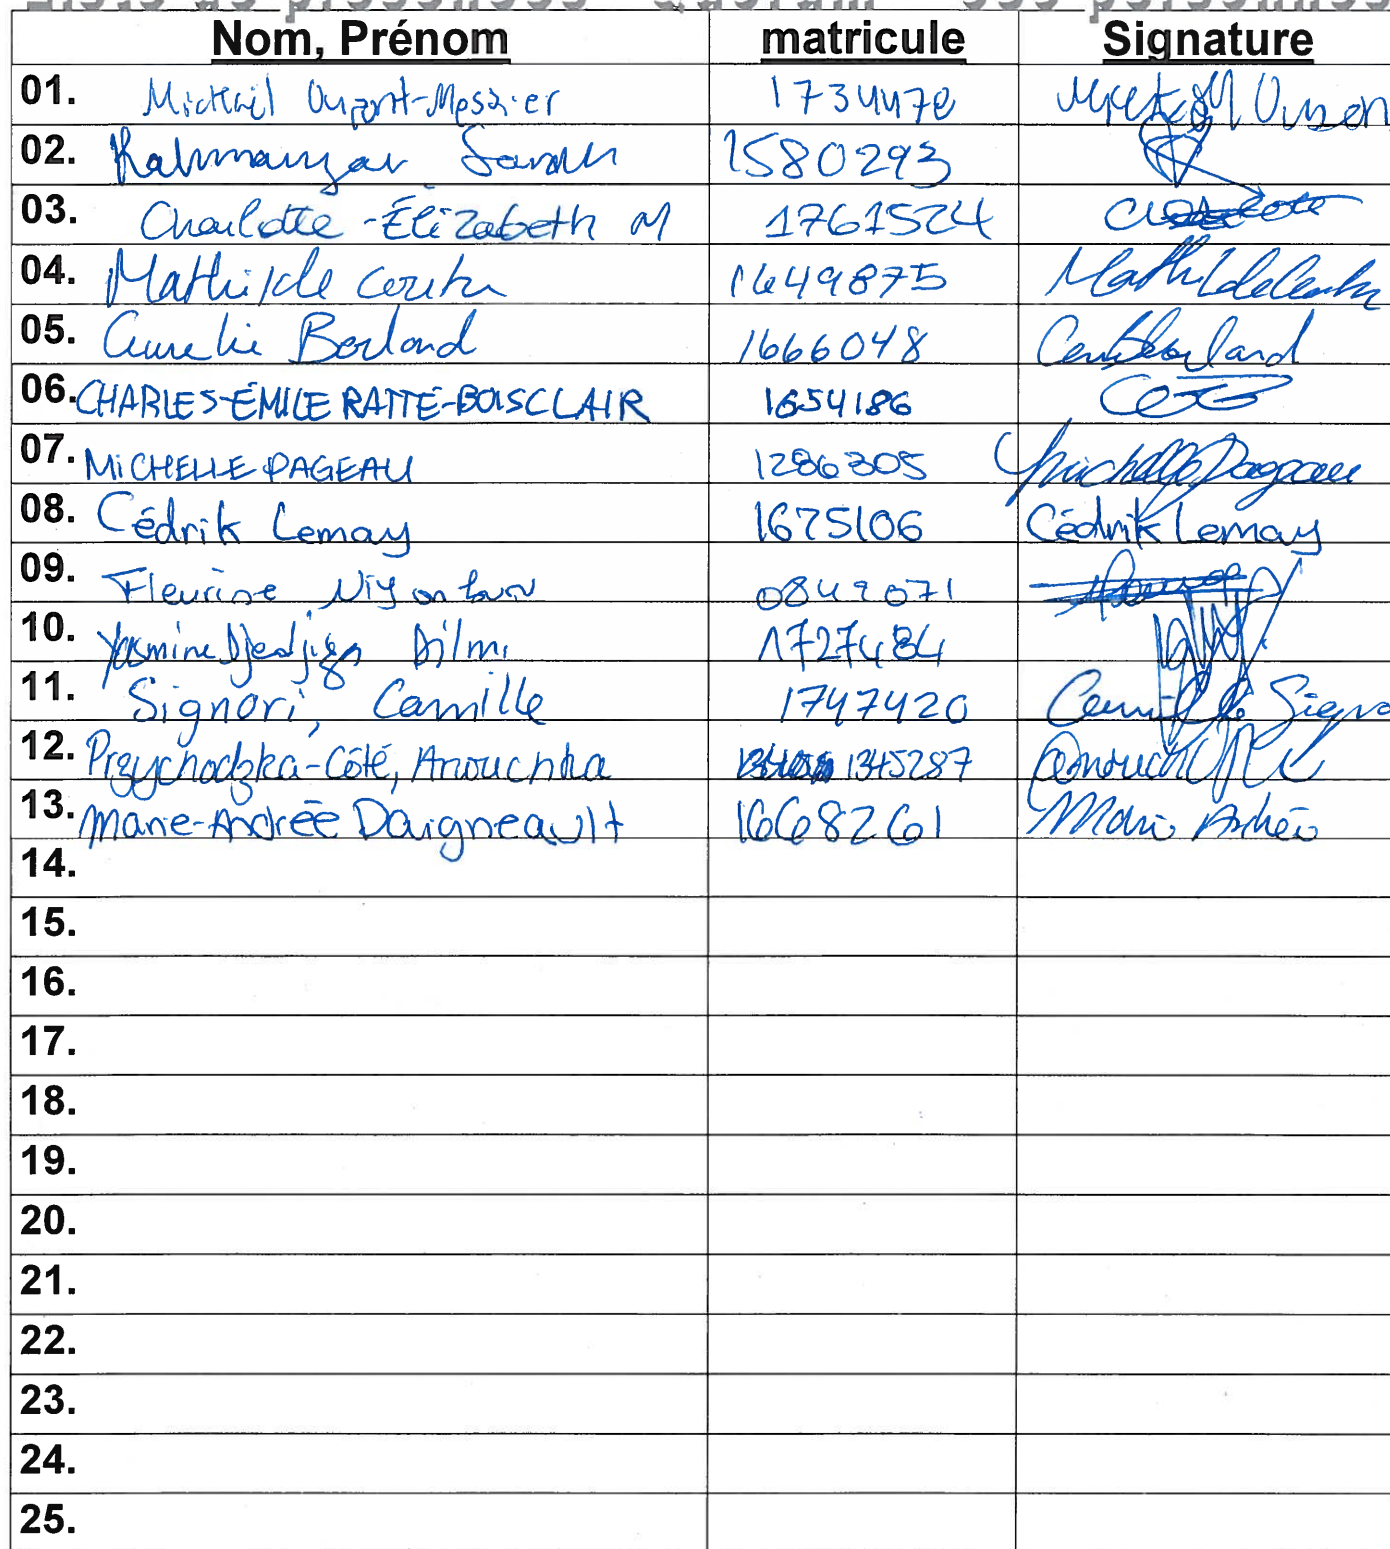 Nom, Prénom matricule Signature
01. Mickaïl Dupont-Messier 1734470
02. Rahmanyar Sarah 1580293
03. Charlotte-Élizabeth M 1761524 Charlotte
04. Mathilde 1649875 Mathilde
05. Aurelie Borland 1666048
06. CHARLES-ÉMILE RATTÉ-BOISCLAIR 1654186
07. MICHELLE PAGEAU 1286305 Michelle Pageau
08. Cédrik Lemay 1675106 Cédrik Lemay
09. Fleurine 0842071
10. Yasmine Djedjiga Dilmi 1727484
11. Signori, Camille 1747420 Camille
12. Przychodzka-Côté, Anouchka 1345287
13. Marie-Andrée Daigneault 1668261 Marie Andrée
14.
15.
16.
17.
18.
19.
20.
21.
22.
23.
24.
25.